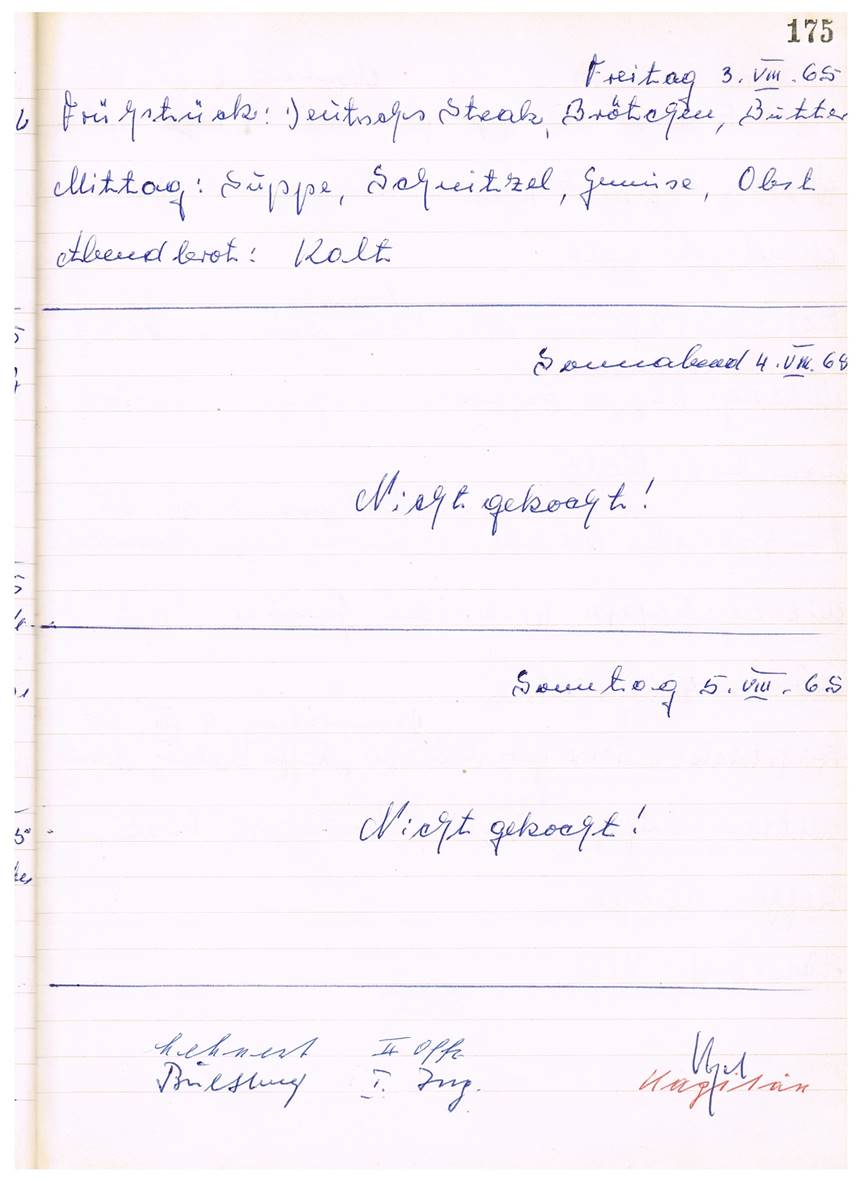 175
Freitag 3. VIII. 65
Frühstück: Deutsches Steak, Brötchen, Butter
Mittag: Suppe, Schnitzel, Gemüse, Obst
Abendbrot: Kalt
Sonnabend 4. VIII. 65
Nicht gekocht!
Sonntag 5. VIII. 65
Nicht gekocht!
Lehnert II Offz.
I. Ing.
Kapitän